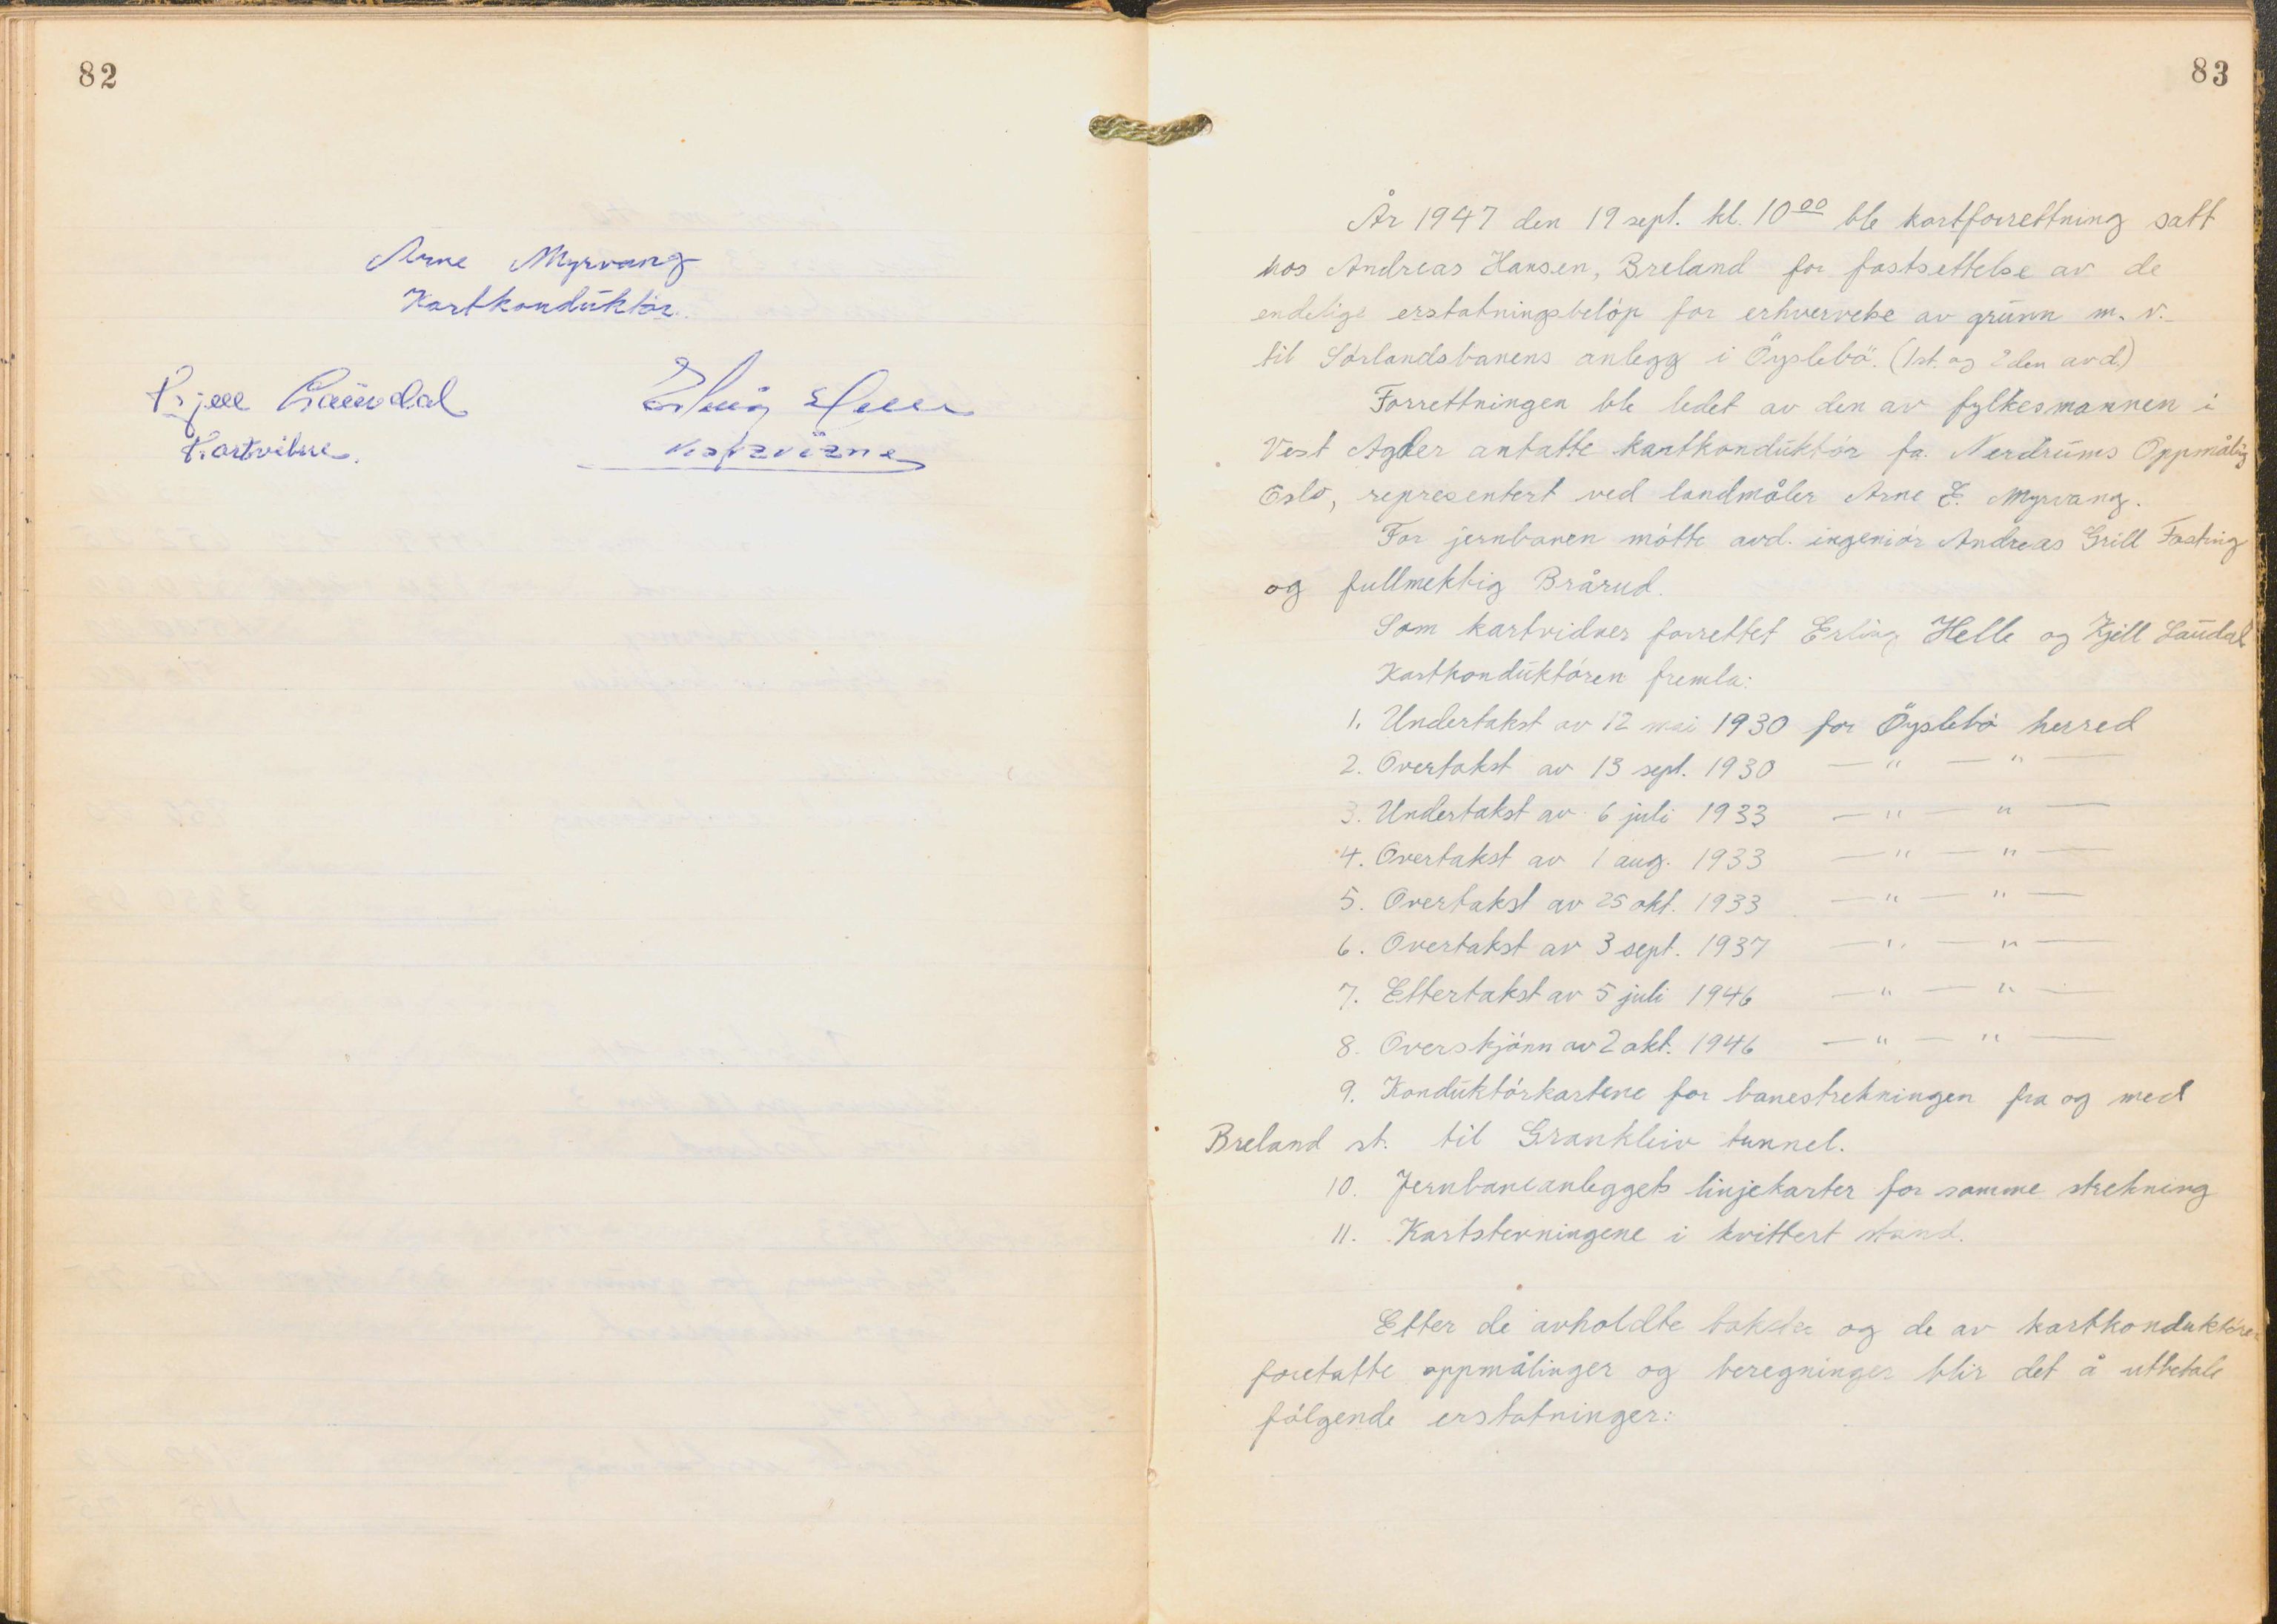 82
Arne Myrvang
Kartkonduktør.
Kjell Laudal
Kartvitne.
Erling Helle
Kartvitne
83
År 1947 den 19 sept. kl. 10 00 ble kartforrettning satt
hos Andreas Hansen, Breland for fastsettelse av de
endelige erstatningsbeløp for erhvervelse av grunn m. v.
til Sørlandsbanens anlegg i Øyslebø. (1st. og 2den avd.)
Forrettningen ble ledet av den av fylkesmannen i
Vest Agder antatte kartkonduktør fa. Nerdrums Oppmåling
Oslo, representert ved landmåler Arne E. Myrvang.
For jernbanen møtte avd. ingeniør Andreas Grill Fasting
og fullmektig Brårud.
Som kartvidner forrettet Erling Helle og Kjell Laudal
Kartkonduktøren fremla:
1. Undertakst av 12 mai 1930 for Øyslebø herred
2. Overtakst av 13 sept. 1930 — " — " —
3. Undertakst av 6 juli 1933 — " — " —
4. Overtakst av 1 aug. 1933 — " — " —
5. Overtakst av 25 okt. 1933 — " — " —
6. Overtakst av 3 sept. 1937 — " — " —
7. Ettertakst av 5 juli 1946 — " — " —
8. Overskjønn av 2 okt. 1946 — " — " —
9. Konduktørkartene for banestrekningen fra og med
Breland st. til Grankleiv tunnel.
10. Jernbaneanleggets linjekarter for samme strekning
11. Kartstevningene i kvittert stand.
Etter de avholdte takster og de av kartkonduktøren
foretatte oppmålinger og beregninger blir det å utbetale
følgende erstatninger: